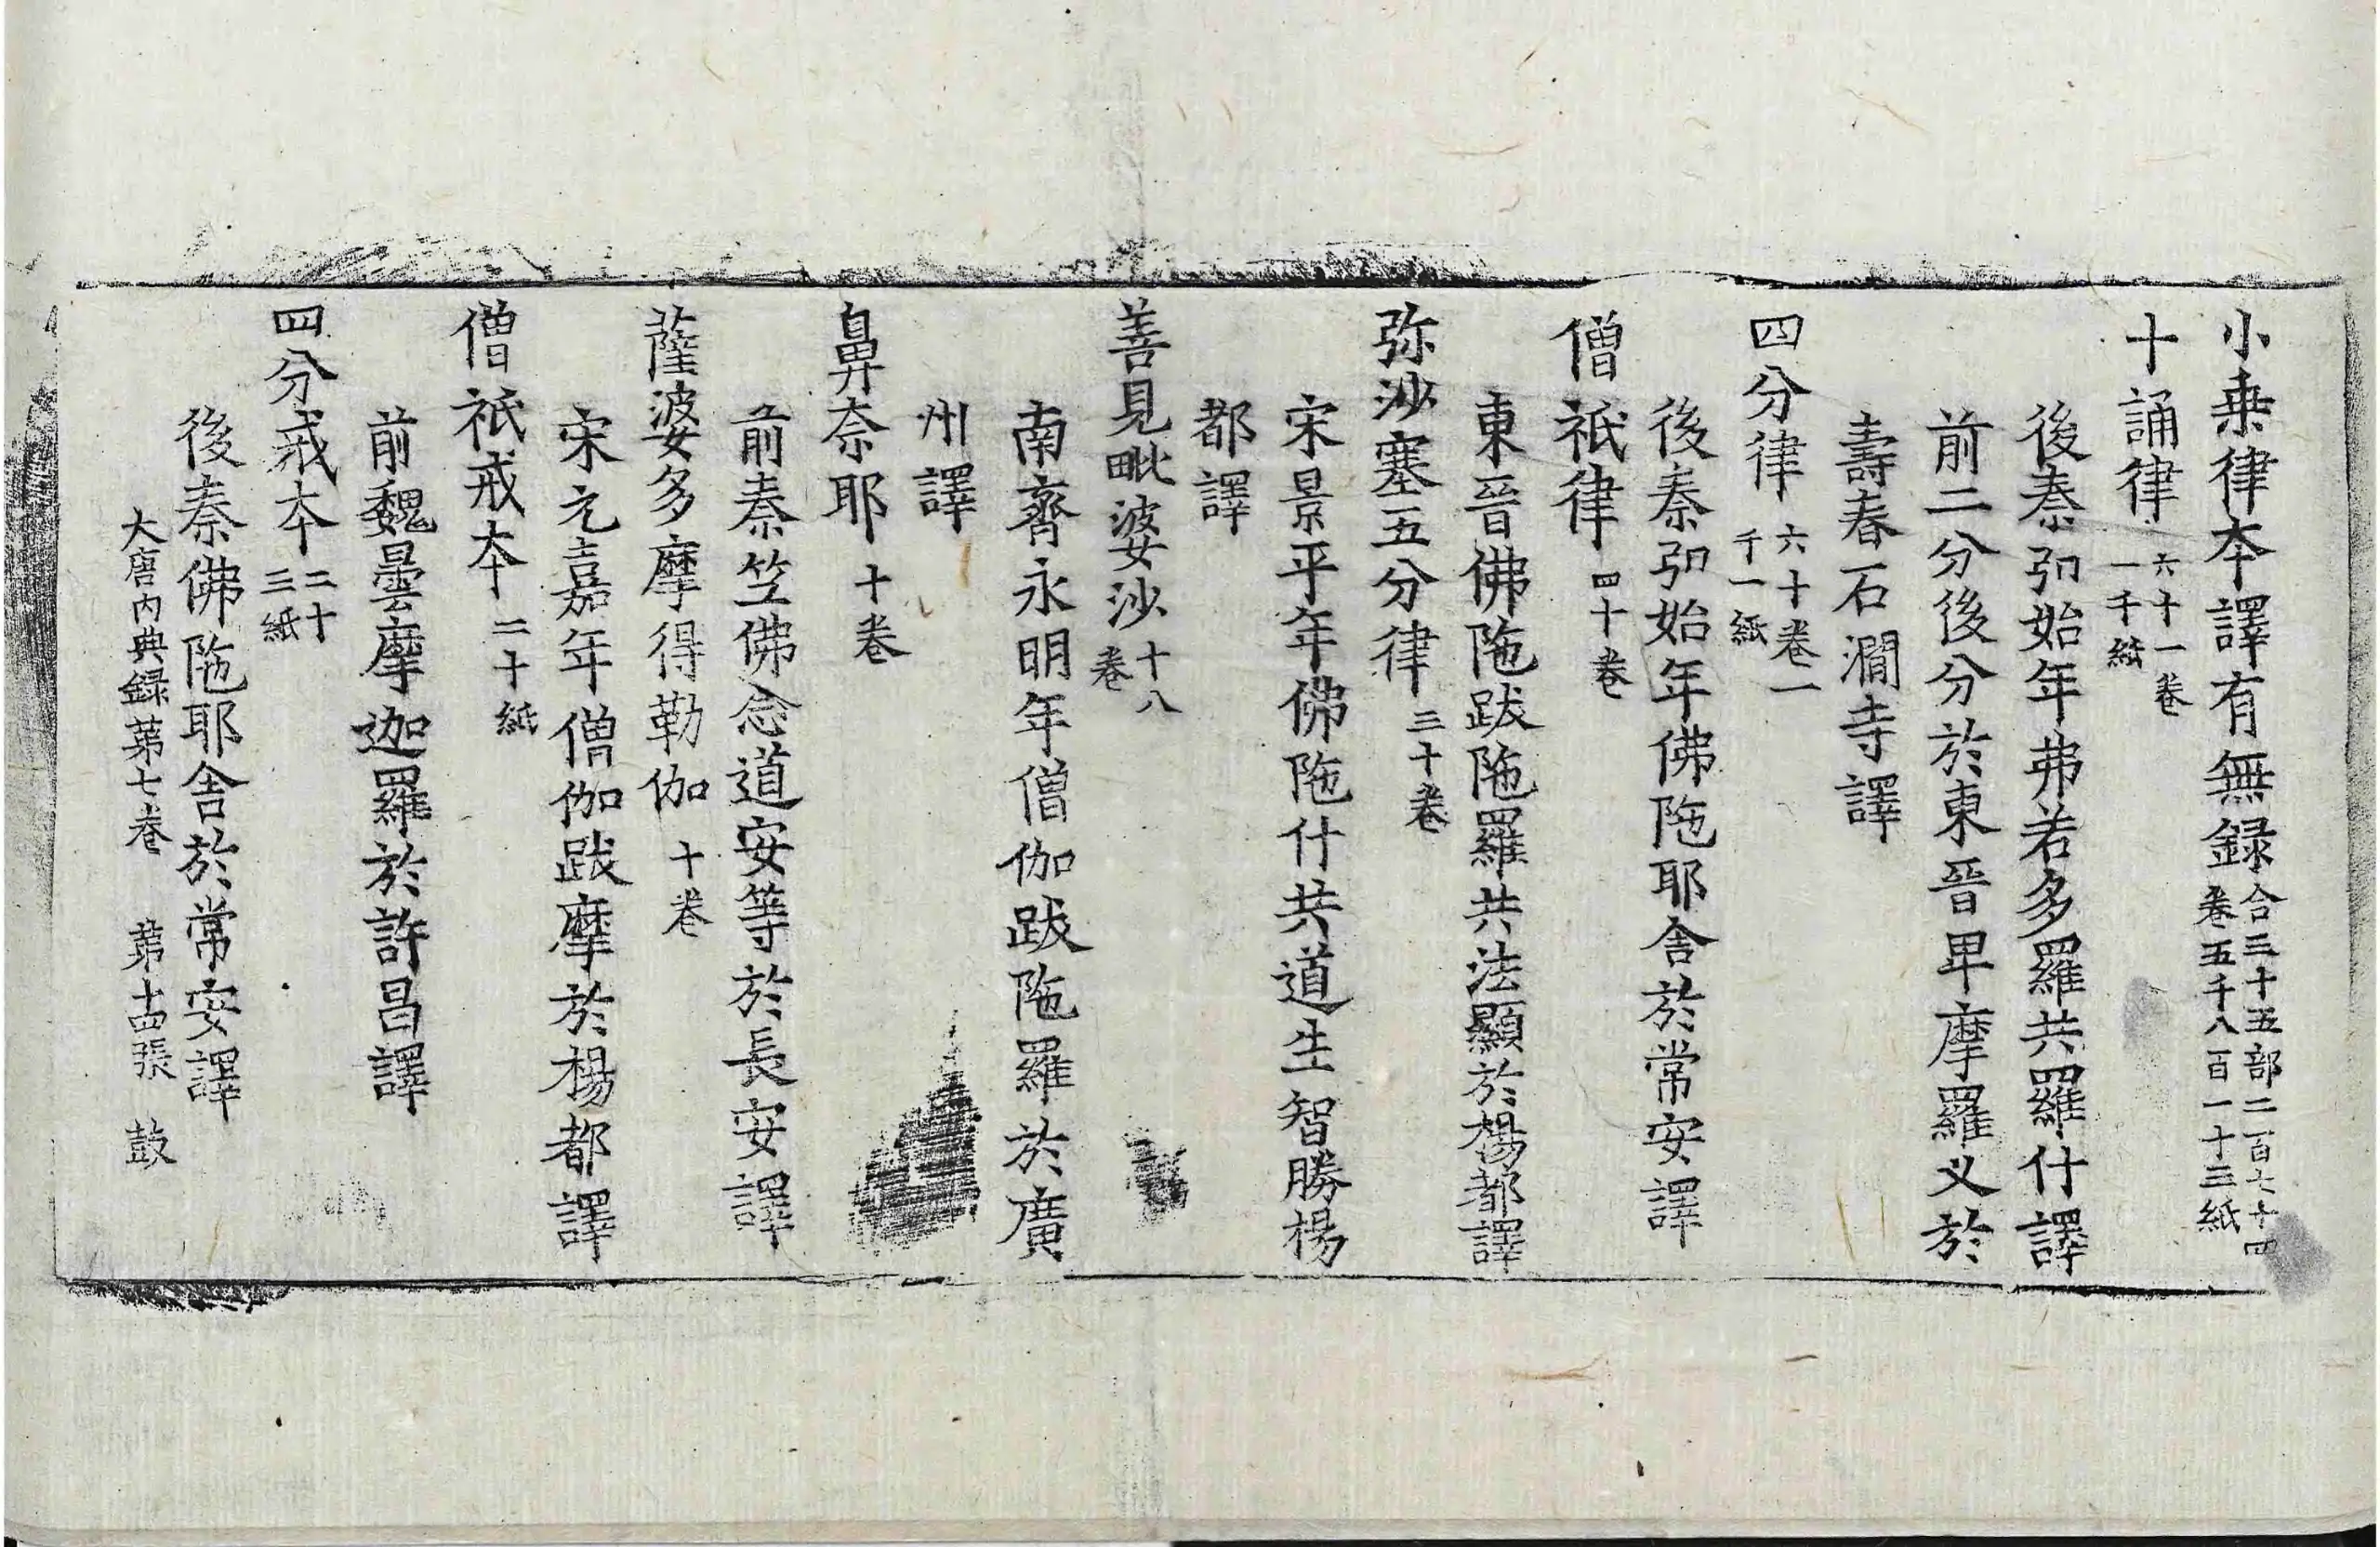 小乗律本譯有無録合三十五部二百七十四卷五千八百一十三紙
十誦律六十一卷一千紙
後秦弘始年弗若多羅共羅什譯
前二分後分於東晉卑摩羅义於
壽春石澗寺譯
四分律六十卷一千一紙
後秦弘始年佛陁耶舍於常安譯
僧祇律四十卷
東晉佛陁跋陁羅共法顯於楊都譯
弥沙塞五分律三十卷
宋景平年佛陁什共道生智勝楊
都譯
善見毗婆沙十八卷
南齊永明年僧伽跋陁羅於廣
州譯
鼻奈耶十卷
前秦竺佛念道安等於長安譯
薩婆多摩得勒伽十卷
宋元嘉年僧伽跋摩於楊都譯
僧祇戒本二十紙
前魏曇摩迦羅於許昌譯
四分戒本二十三紙
後秦佛陁耶舍於常安譯
大唐内典録苐七卷 苐十四張 鼓